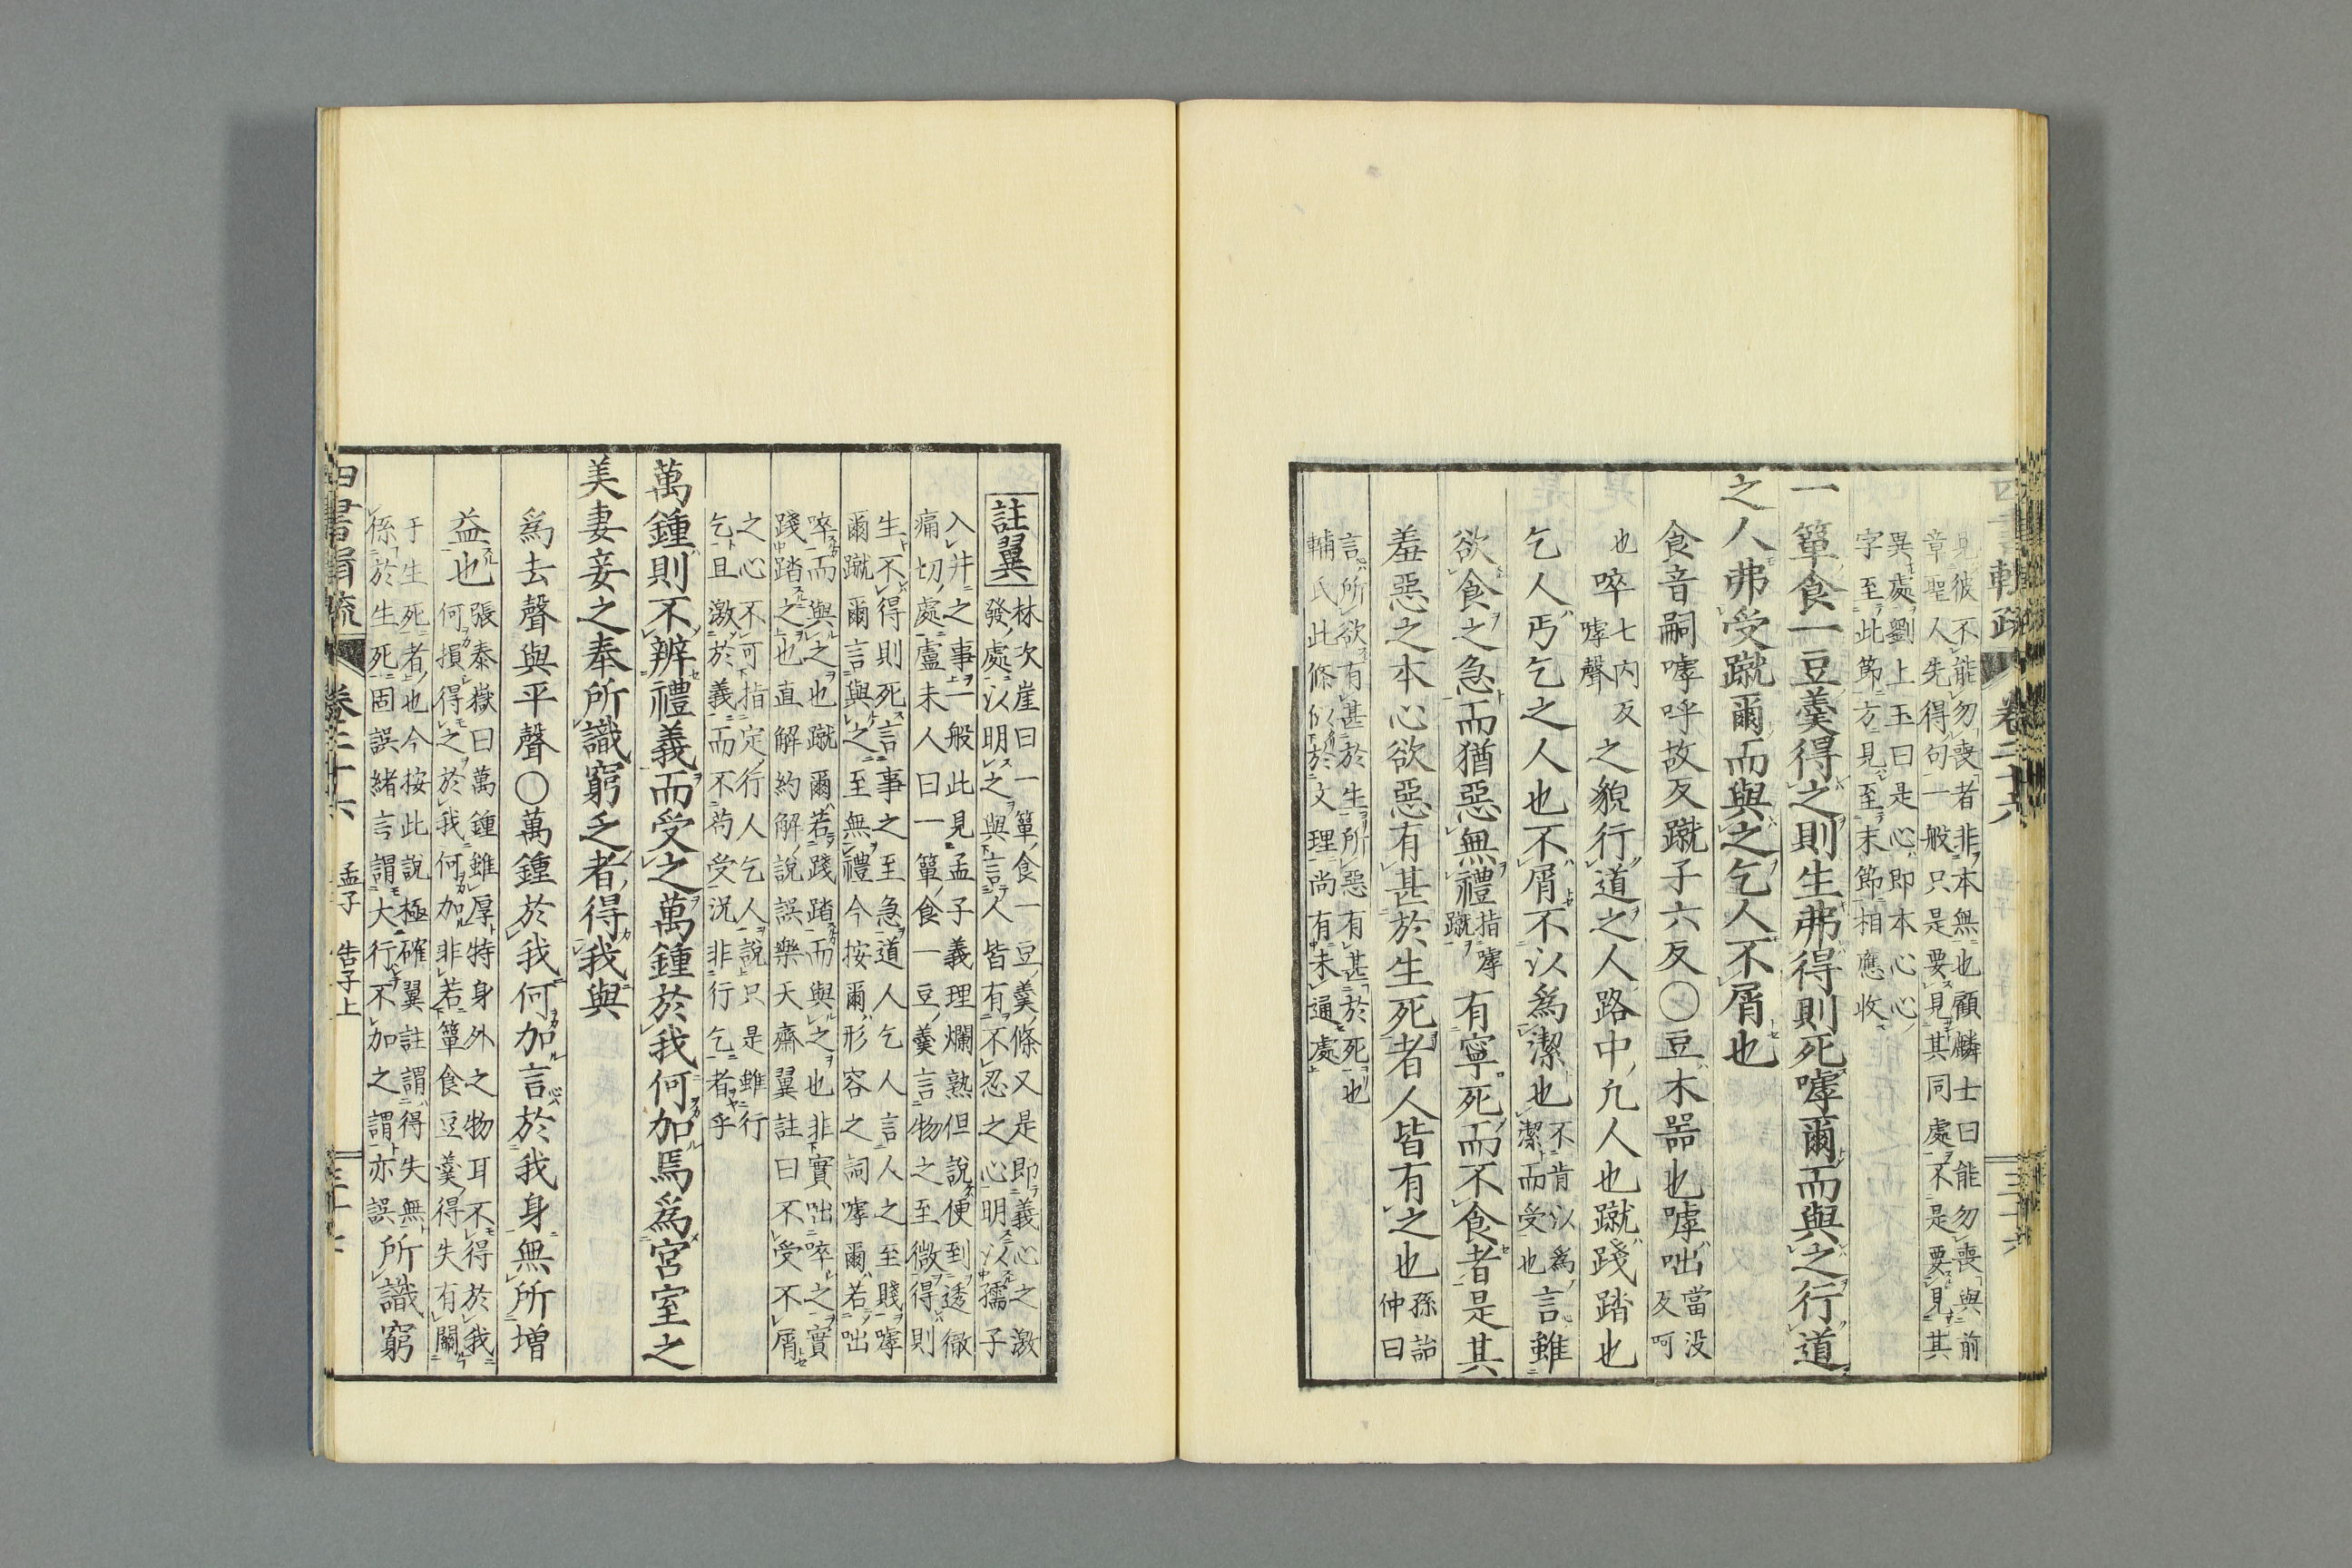 見彼不能勿喪者非本無也顧麟士曰能勿喪與前
章聖人先得句一般只是要見其同處不是要見其
異處劉上玉曰是心即本心心
字至此節方見至末節相應收
一簞食一豆羹得之則生弗得則死嘑爾而與之行道
之人弗受蹴爾而與之乞人不屑也
食音嗣嘑呼故反蹴子六反〇豆木噐也嘑咄當没
反呵
也啐七内反
嘑聲之貌行道之人路中凡人也蹴踐踏也
乞人丐乞之人也不屑不以爲潔也不肯以爲
潔而受也言雖
欲食之急而猶惡無禮指嘑
蹴有寧死而不食者是其
羞惡之本心欲惡有甚於生死者人皆有之也孫詒
仲曰
言所欲有甚於生所惡有甚於死也
輔氏此條似於文理尚有未通處
註翼
林次崖曰一簞食一豆羹條又是即義心之激
發處以明之與言人皆有不忍之心明以孺子
入井之事一般此見孟子義理爛熟但說便到透徹
痛切處盧未人曰一簞食一豆羹言物之至微得則
生不得則死言事之至急道人乞人言人之至賤嘑
爾蹴爾言與之至無禮今按爾形容之詞嘑爾若咄
啐而與之也蹴爾若踐踏而與之也非實咄啐之實
踐踏之也直解約解說誤樂天齋翼註曰不受不屑
之心不可指定行人乞人說只是雖行
乞且激於義而不苟受況非行乞者乎
萬鍾則不辨禮義而受之萬鍾於我何加焉爲宮室之
美妻妾之奉所識窮乏者得我與
爲去聲與平聲〇萬鍾於我何加言於我身無所增
益也張泰嶽曰萬鍾雖厚特身外之物耳不得於我
何損得之於我何加非若簞食豆羹得失有關
于生死者也今按此說極確翼註謂得失無
係於生死固誤緒言謂大行不加之謂亦誤所識窮
孟子 告子上